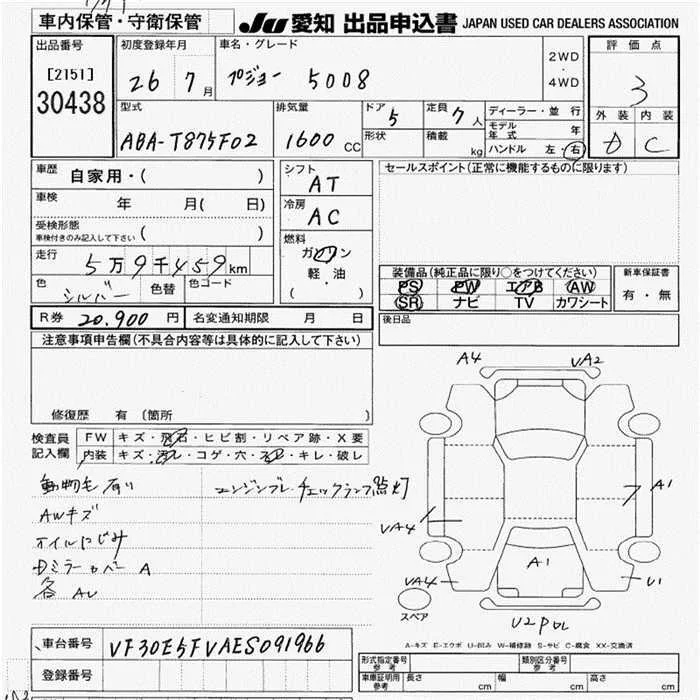 車内保管・守衛保管
JU 愛知 出品申込書 JAPAN USED CAR DEALERS ASSOCIATION
出品番号
[2151]
30438
初度登録年月
26 7月
車名・グレード
プジョー 5008
2WD
・
4WD
評価点
3
外装 内装
D C
型式
ABA-T875F02
排気量
1600 CC
ドア 5
形状
定員 7 人
積載 kg
ディーラー・並行
モデル年式 年
ハンドル 左・右
車歴 自家用・( )
車検 年 月( 日)
受検形態
車検付きのみ記入して下さい ( )
走行 5万9千459km
色 シルバー 色替 色コード
シフト
AT
冷房
AC
燃料
ガソリン
軽・油
( )
セールスポイント(正常に機能するものに限ります)
装備品(純正品に限り○をつけてください)
PS PW エアB AW
SR ナビ TV カワシート
新車保証書
有・無
R券 20.900 円 名変通知期限 月 日
後日品
注意事項申告欄(不具合内容等は具体的に記入して下さい)
修復歴 有(箇所 )
検査員
記入欄
FW キズ・飛石・ヒビ割・リペア跡・X要
内装 キズ・汚レ・コゲ・穴・スレ・キレ・破レ
動物毛有り エンジンブレ・チェックランプ点灯
AWキズ
オイルにじみ
Dミラーカバー A
各 AU
A4 UA2
A1
UA4
A1
UA4 U1
スペア
U2PDL
A-キズ E-エクボ U-凹み W-補修跡 S-サビ C-腐食 XX-交換済
車台番号 VF30E5FVAES091966
登録番号
形式指定番号
参考
類別区分番号
参考
車庫証明用
参考
長さ cm 幅 cm 高さ cm